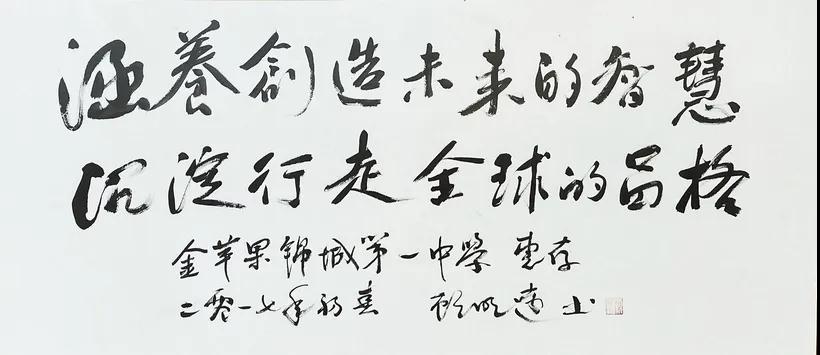 涵養創造未来的智慧
沉淀行走全球的品格
金苹果锦城第一中學 惠存
二零一七年初 顾明遠 书